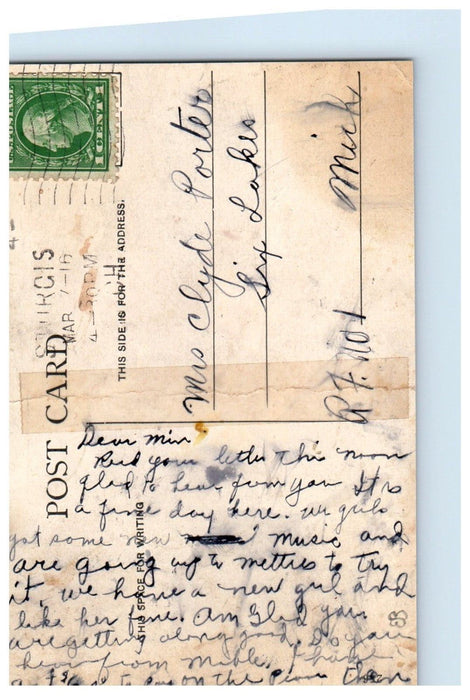 1 CENT 1
STURGIS
MAR 7-16
4-30PM
POST CARD
THIS SIDE IS FOR THE ADDRESS.
Mrs Clyde Porter
Six Lakes
R.F. No 1 Mich
THIS SPACE FOR WRITING
Dear Min
Recd your letter this noon
glad to hear from you It is
a fine day here. we girls
got some new music and
are going up to metties to try
it, we have a new girl and
like her fine. Am glad you
are getting along good. Do you
hear from Mable.
on the